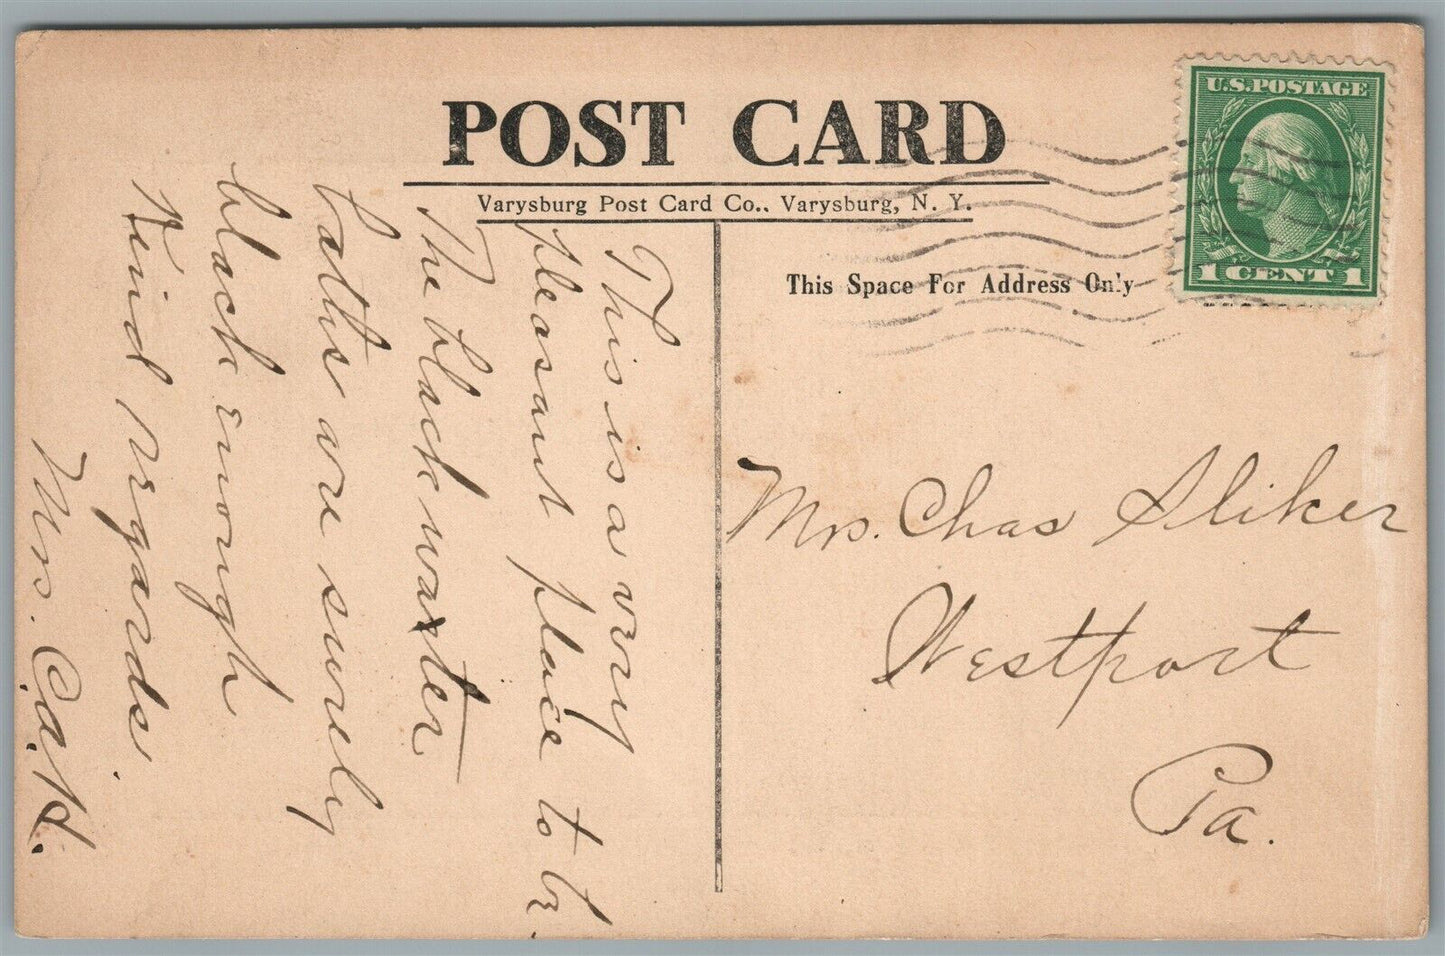 POST CARD
Varysburg Post Card Co., Varysburg, N. Y.
This Space For Address Only
U.S. POSTAGE
1 CENT 1
This is a very
pleasant place to be
The black water
baths are surely
black enough
Kind regards
Mrs. C. A. H.
Mrs. Chas Sliker
Westport
Pa.